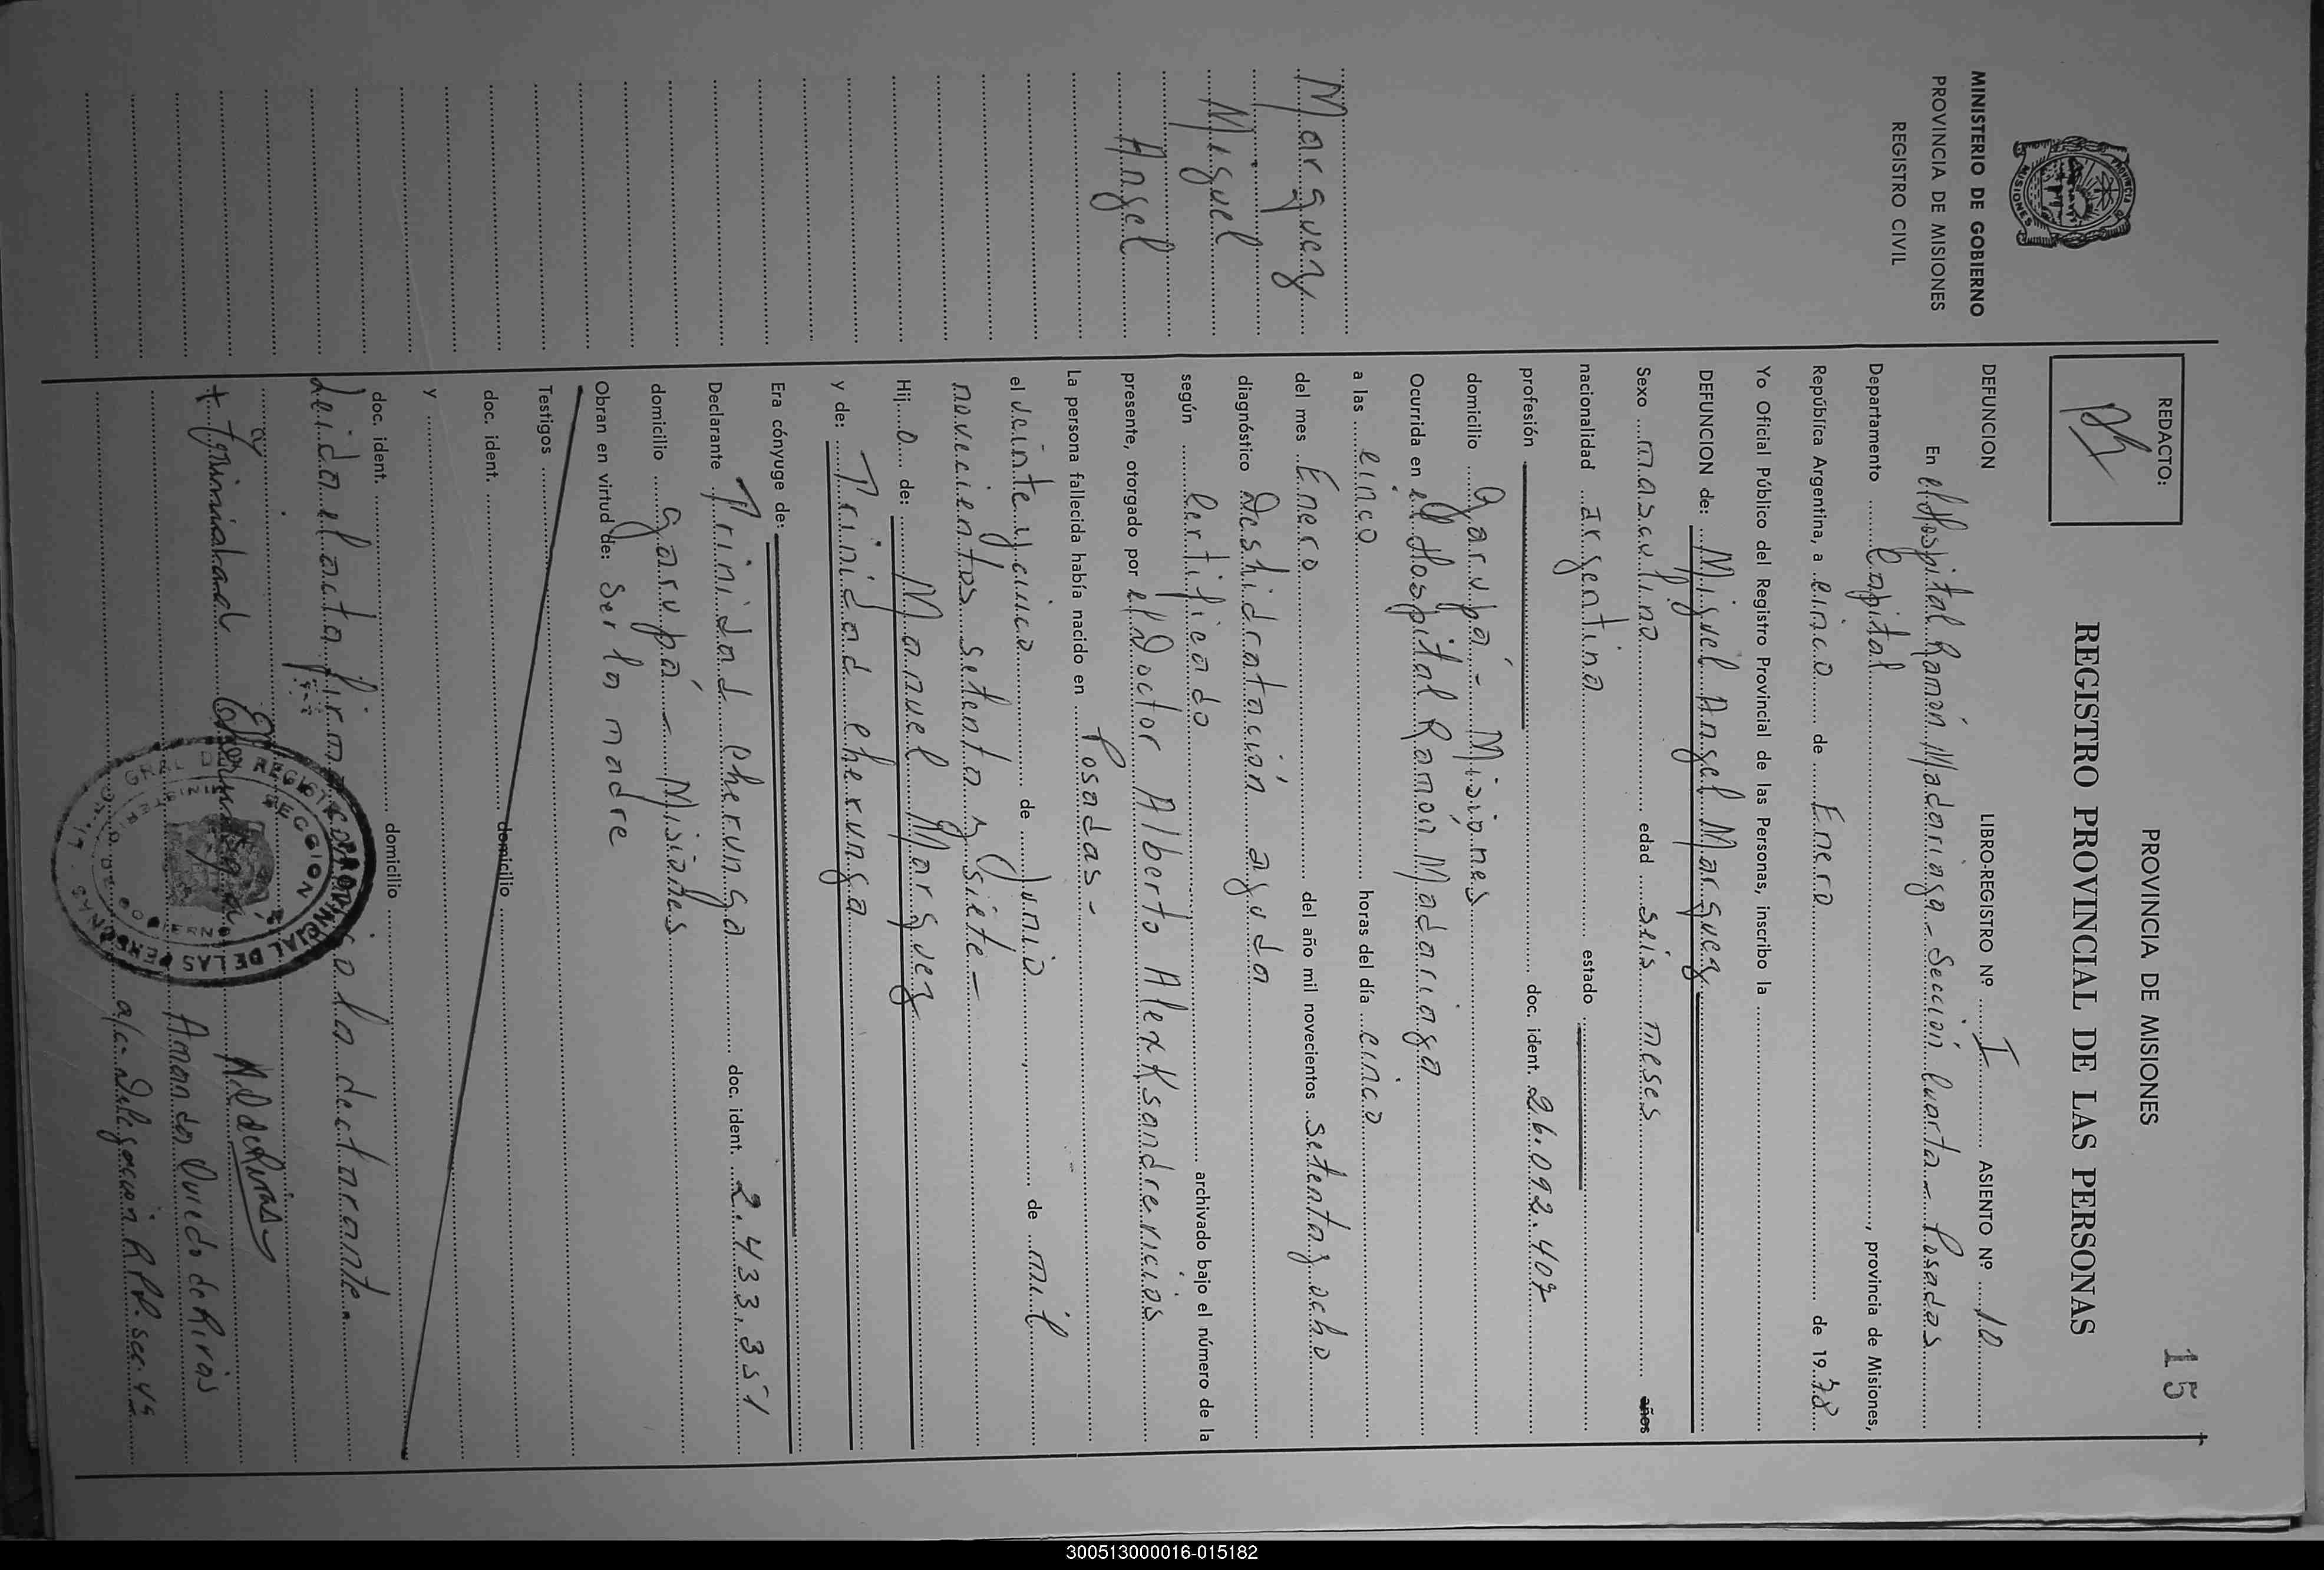 MINISTERIO DE GOBIERNO
PROVINCIA DE MISIONES
REGISTRO CIVIL
Marquez
Miguel
Angel
15
PROVINCIA DE MISIONES
REDACTO:
REGISTRO PROVINCIAL DE LAS PERSONAS
DEFUNCION LIBRO-REGISTRO Nº I ASIENTO Nº 10
En el Hospital Ramón Madariaga - Sección Cuarta - Posadas
Departamento Capital, provincia de Misiones,
República Argentina, a cinco de Enero de 1978
Yo Oficial Público del Registro Provincial de las Personas, inscribo la
DEFUNCION de: Miguel Angel Marquez
Sexo masculino edad seis meses años
nacionalidad argentina estado
profesión doc. ident. 26.092.407
domicilio Garupá - Misiones
Ocurrida en el Hospital Ramón Madariaga
a las cinco horas del día cinco
del mes Enero del año mil novecientos setenta y ocho
diagnóstico Deshidratación aguda
según Certificado archivado bajo el número de la
presente, otorgado por el Doctor Alberto Alexksandrericios
La persona fallecida había nacido en Posadas -
el veinte y cinco de Junio de mil
novecientos setenta y siete -
Hijo de: Manuel Marquez
y de: Trinidad Cherunga
Era cónyuge de:
Declarante Trinidad Cherunga doc. ident. 2.433.351
domicilio Garupá - Misiones
Obran en virtud de: Ser la madre
Testigos
doc. ident. domicilio
y
doc. ident. domicilio
Leida el acta firma la declarante.
Trinidad
Amanda Oviedo de Rivas
a/c. Delegación R.P.P. sec. 4ª
REGISTRO PROVINCIAL DE LAS PERSONAS
SECCION
300513000016-015182